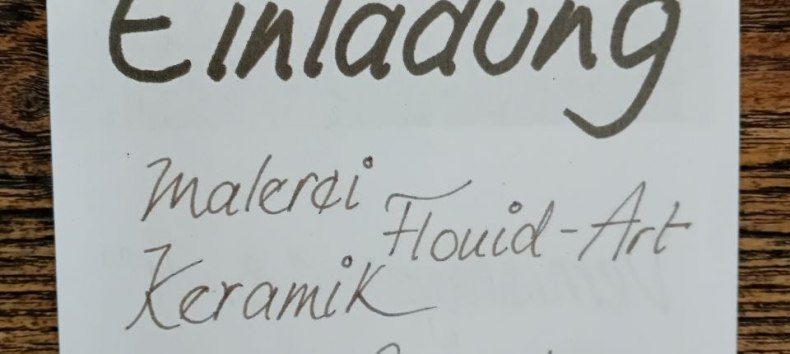 Einladung
Malerei
Flouid-Art
Keramik